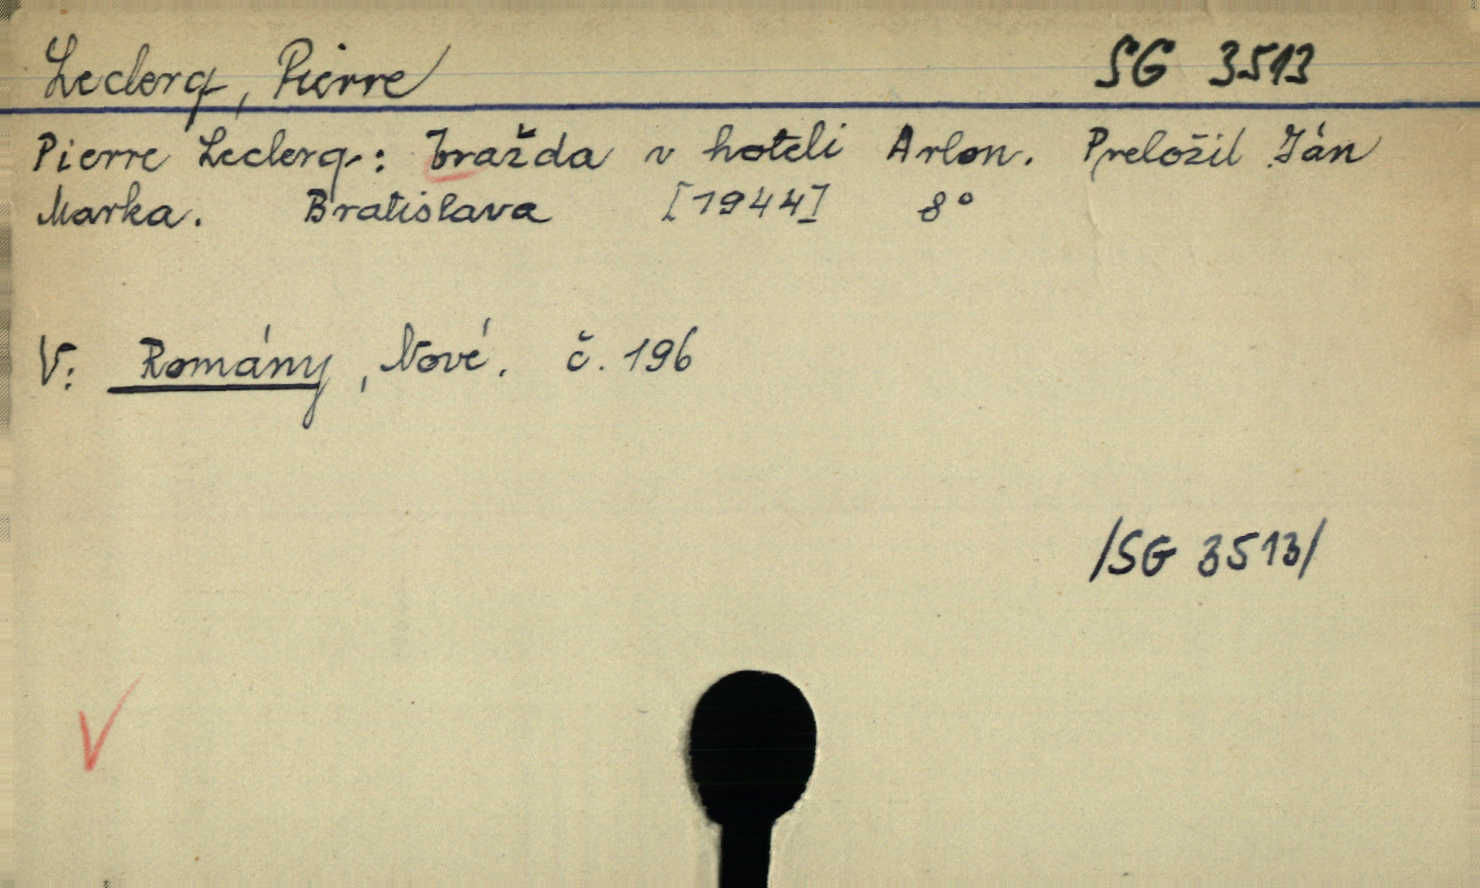 Leclerq, Pierre SG 3513
Pierre Leclerq: Vražda v hoteli Arlon. Preložil Ján
Marka. Bratislava [1944] 8°
V: Romány, Nové. č. 196
/SG 3513/